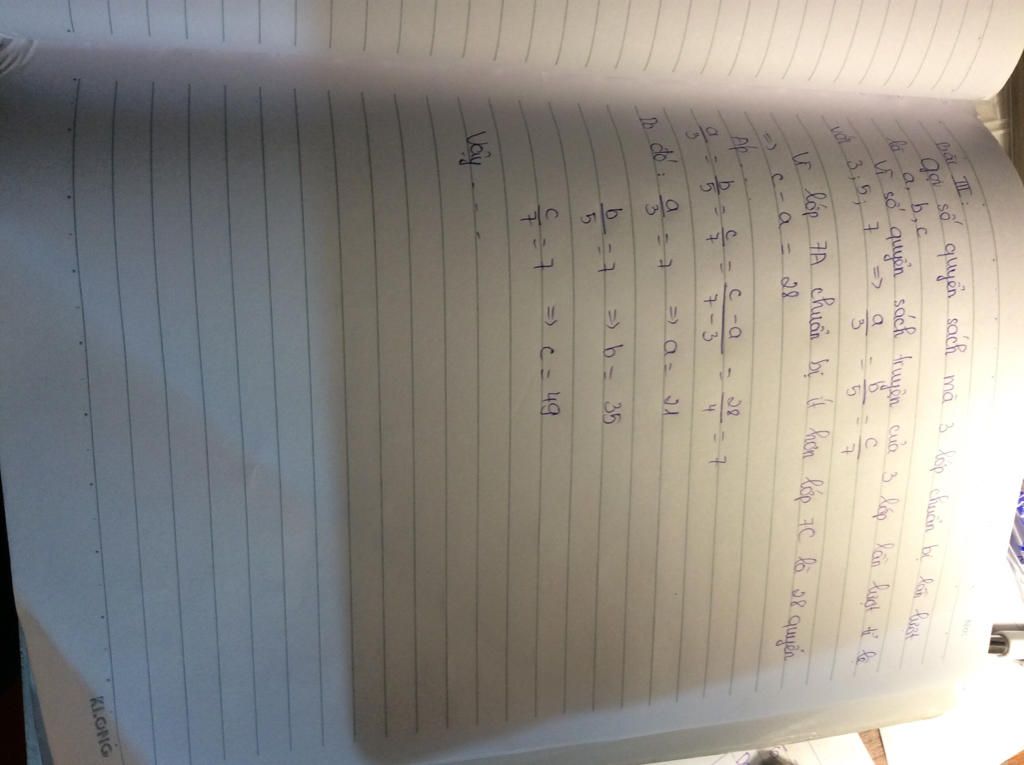 Bài III:
Gọi số quyển sách mà 3 lớp chuẩn bị lần lượt
là a, b, c
Vì số quyển sách truyện của 3 lớp lần lượt tỉ lệ
với 3; 5; 7 => a/3 = b/5 = c/7
Vì lớp 7A chuẩn bị ít hơn lớp 7C là 28 quyển
=> c - a = 28
Ad . . .
a/3 = b/5 = c/7 = c - a/7 - 3 = 28/4 = 7
Do đó: a/3 = 7 => a = 21
b/5 = 7 => b = 35
c/7 = 7 => c = 49
Vậy - - -
KLONG